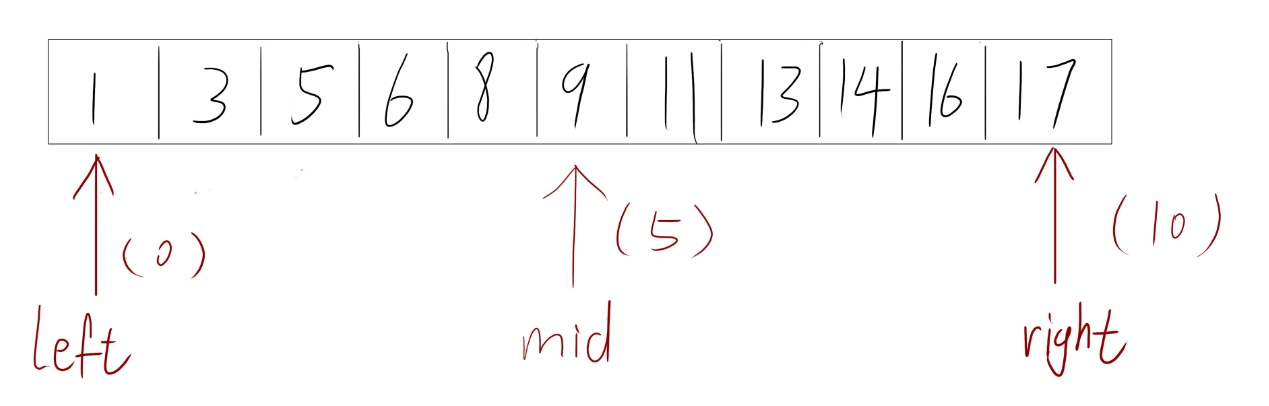 1 3 5 6 8 9 11 13 14 16 17
(0) (5) (10)
left mid right